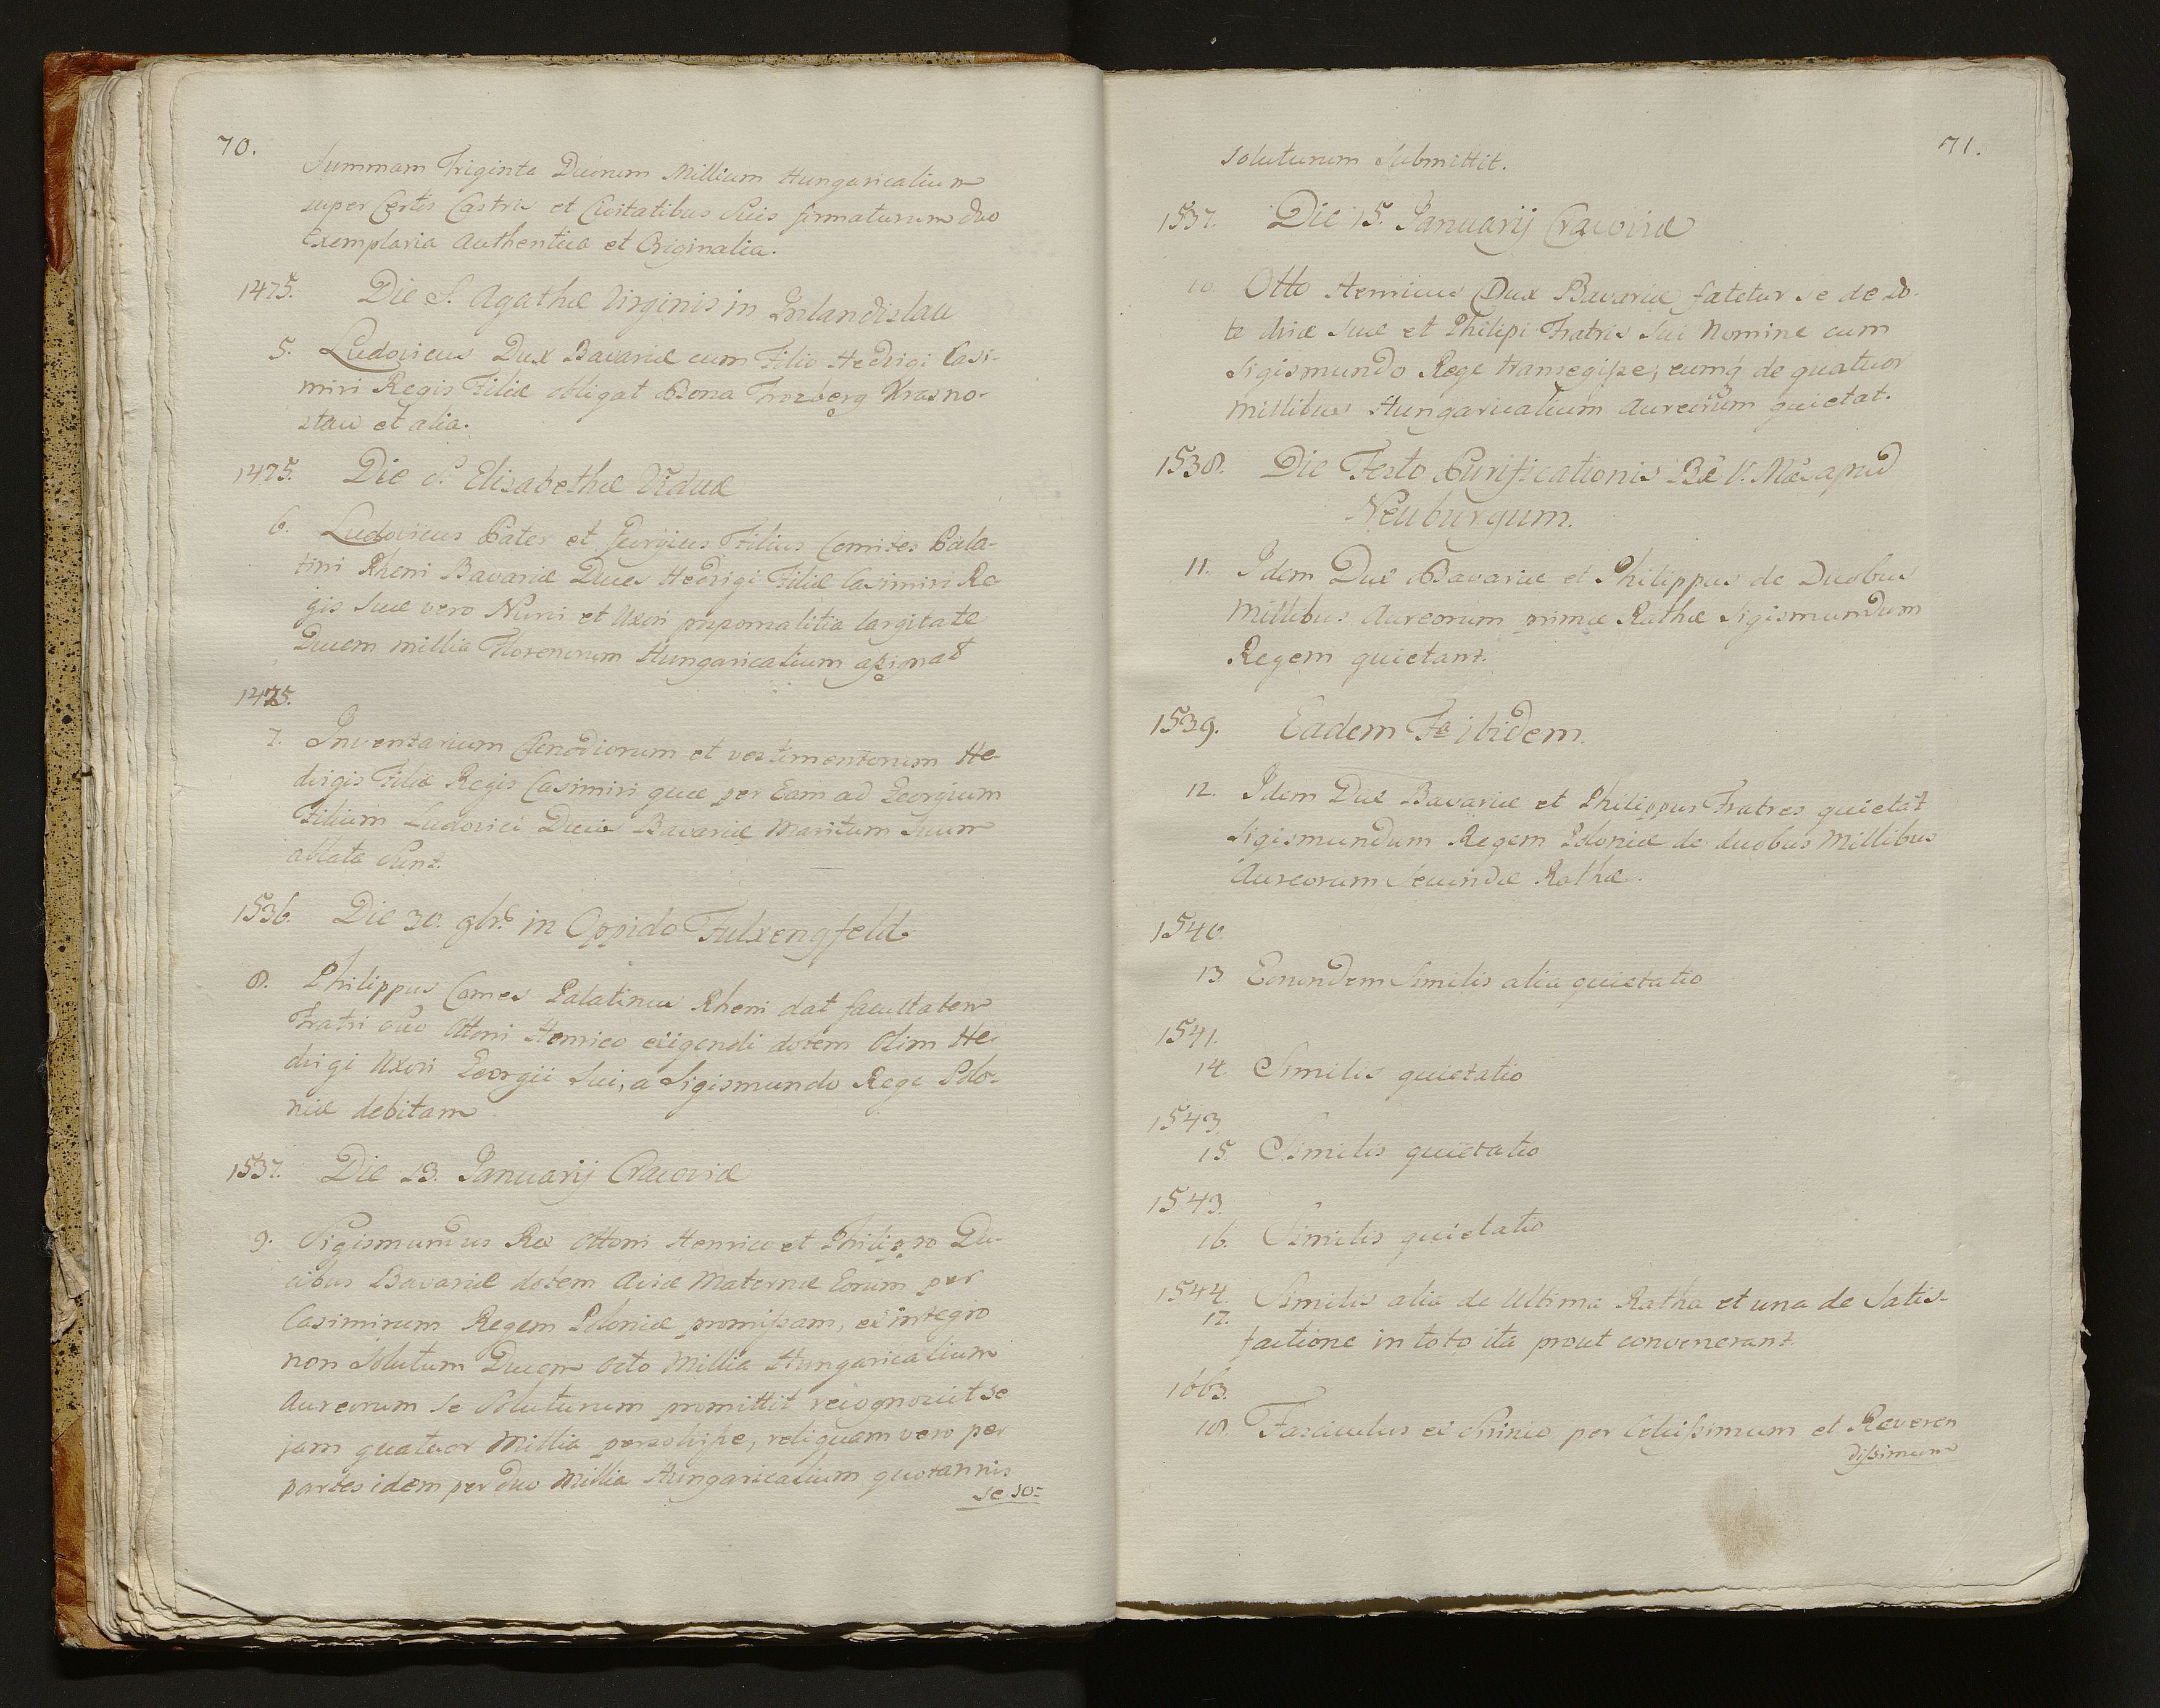 70.
Summam Triginta Duorum Millium Hungaricalium
super Certis Castris et Civitatibus Suis firmaturum duo
Exemplaria Authentica et Originalia.
1475. Die S. Agathæ Virginis in
5. Ludovicus Dux Bavariæ cum Filio Hedvigi Casi-
miri Regis Filiæ obligat Bona Krasno-
stau et alia.
1475. Die S. Elisabethæ Viduæ
6. Ludovicus Pater et Georgius Filius Comites Pala-
tini Rheni Bavariæ Duces Hedvigi Filiæ Casimiri Re-
gis Suæ vero Nurui et Uxori largitate
Ducem millia Florenorum Hungaricalium aßignat
1475.
7. Inventarium Clenodiorum et vestimentorum He-
dvigis Filiæ Regis Casimiri quæ per Eam ad Georgium
Filium Ludovici Ducis Bavariæ Maritum Suum
allata Sunt.
1536. Die 30. 9br. in Oppido
8. Philippus Comes Palatinus Rheni dat facultatem
Fratri suo Ottoni Henrico exigendi dotem Olim He-
dvigi Uxori Georgii Sui, a Sigismundo Rege Polo-
niæ debitam
1537. Die 13. Januarij Cracoviæ
9. Sigismundus Rex Ottoni Henrico et Philippo Du-
cibus Bavariæ dotem Aviæ Maternæ Eorum per
Casimirum Regem Poloniæ promißam, ex integro
non Solutam Ducem octo Millia Hungaricalium
Aureorum Se Soluturum promittit recognovit se
jam quatuor Millia persolviße, reliquam vero per
partes idem per duo Millia Hungaricalium quotannis
se so=
71.
soluturum Submittit.
1537. Die 15. Januarij Cracoviæ
10. Otto Henricus Dux Bavariæ fatetur se de Do-
te Aviæ Suæ et Philipi Fratris Sui Nomine cum
Sigismundo Rege transegiße, eumq de quatuor
Millibus Hungaricalium Aureorum quietat.
1538. Die Festo Purificationis Bæ V. Mæ apud
Neuburgum.
11. Idem Dux Bavariæ et Philippus de Duobus
Millibus Aureorum primæ Rathæ Sigismundum
Regem quietant.
1539. Eadem Fa ibidem.
12. Idem Dux Bavariæ et Philippus Fratres quietat
Sigismundum Regem Poloniæ de duobus Millibus
Aureorum Secundæ Rathæ.
1540.
13 Eorundem Similis alia quietatio
1541.
14. Similis quietatio
1543.
15. Similis quietatio
1543.
16. Similis quietatio
1544. Similis alia de Ultima Ratha et una de Satis-
17.
factione in toto ita prout convenerant.
1663.
18. Fasciculus ex per Celsißimum et Reveren
dißimum